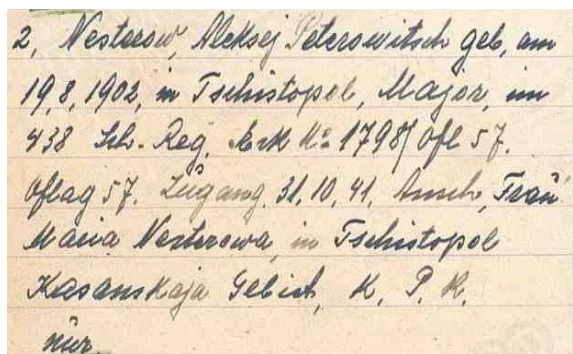 2, Nesterow, Aleksej Peterowitsch geb, am
19,8,1902, in Tschistopol, Major, im
438 Sch.-Reg, Erk No 1798/Ofl 57.
Oflag 57. Zugang, 31,10,41, Ansch, Frau
Maria Nesterowa, in Tschistopol
Kasanskaja Gebiet, K, P, R,
nur